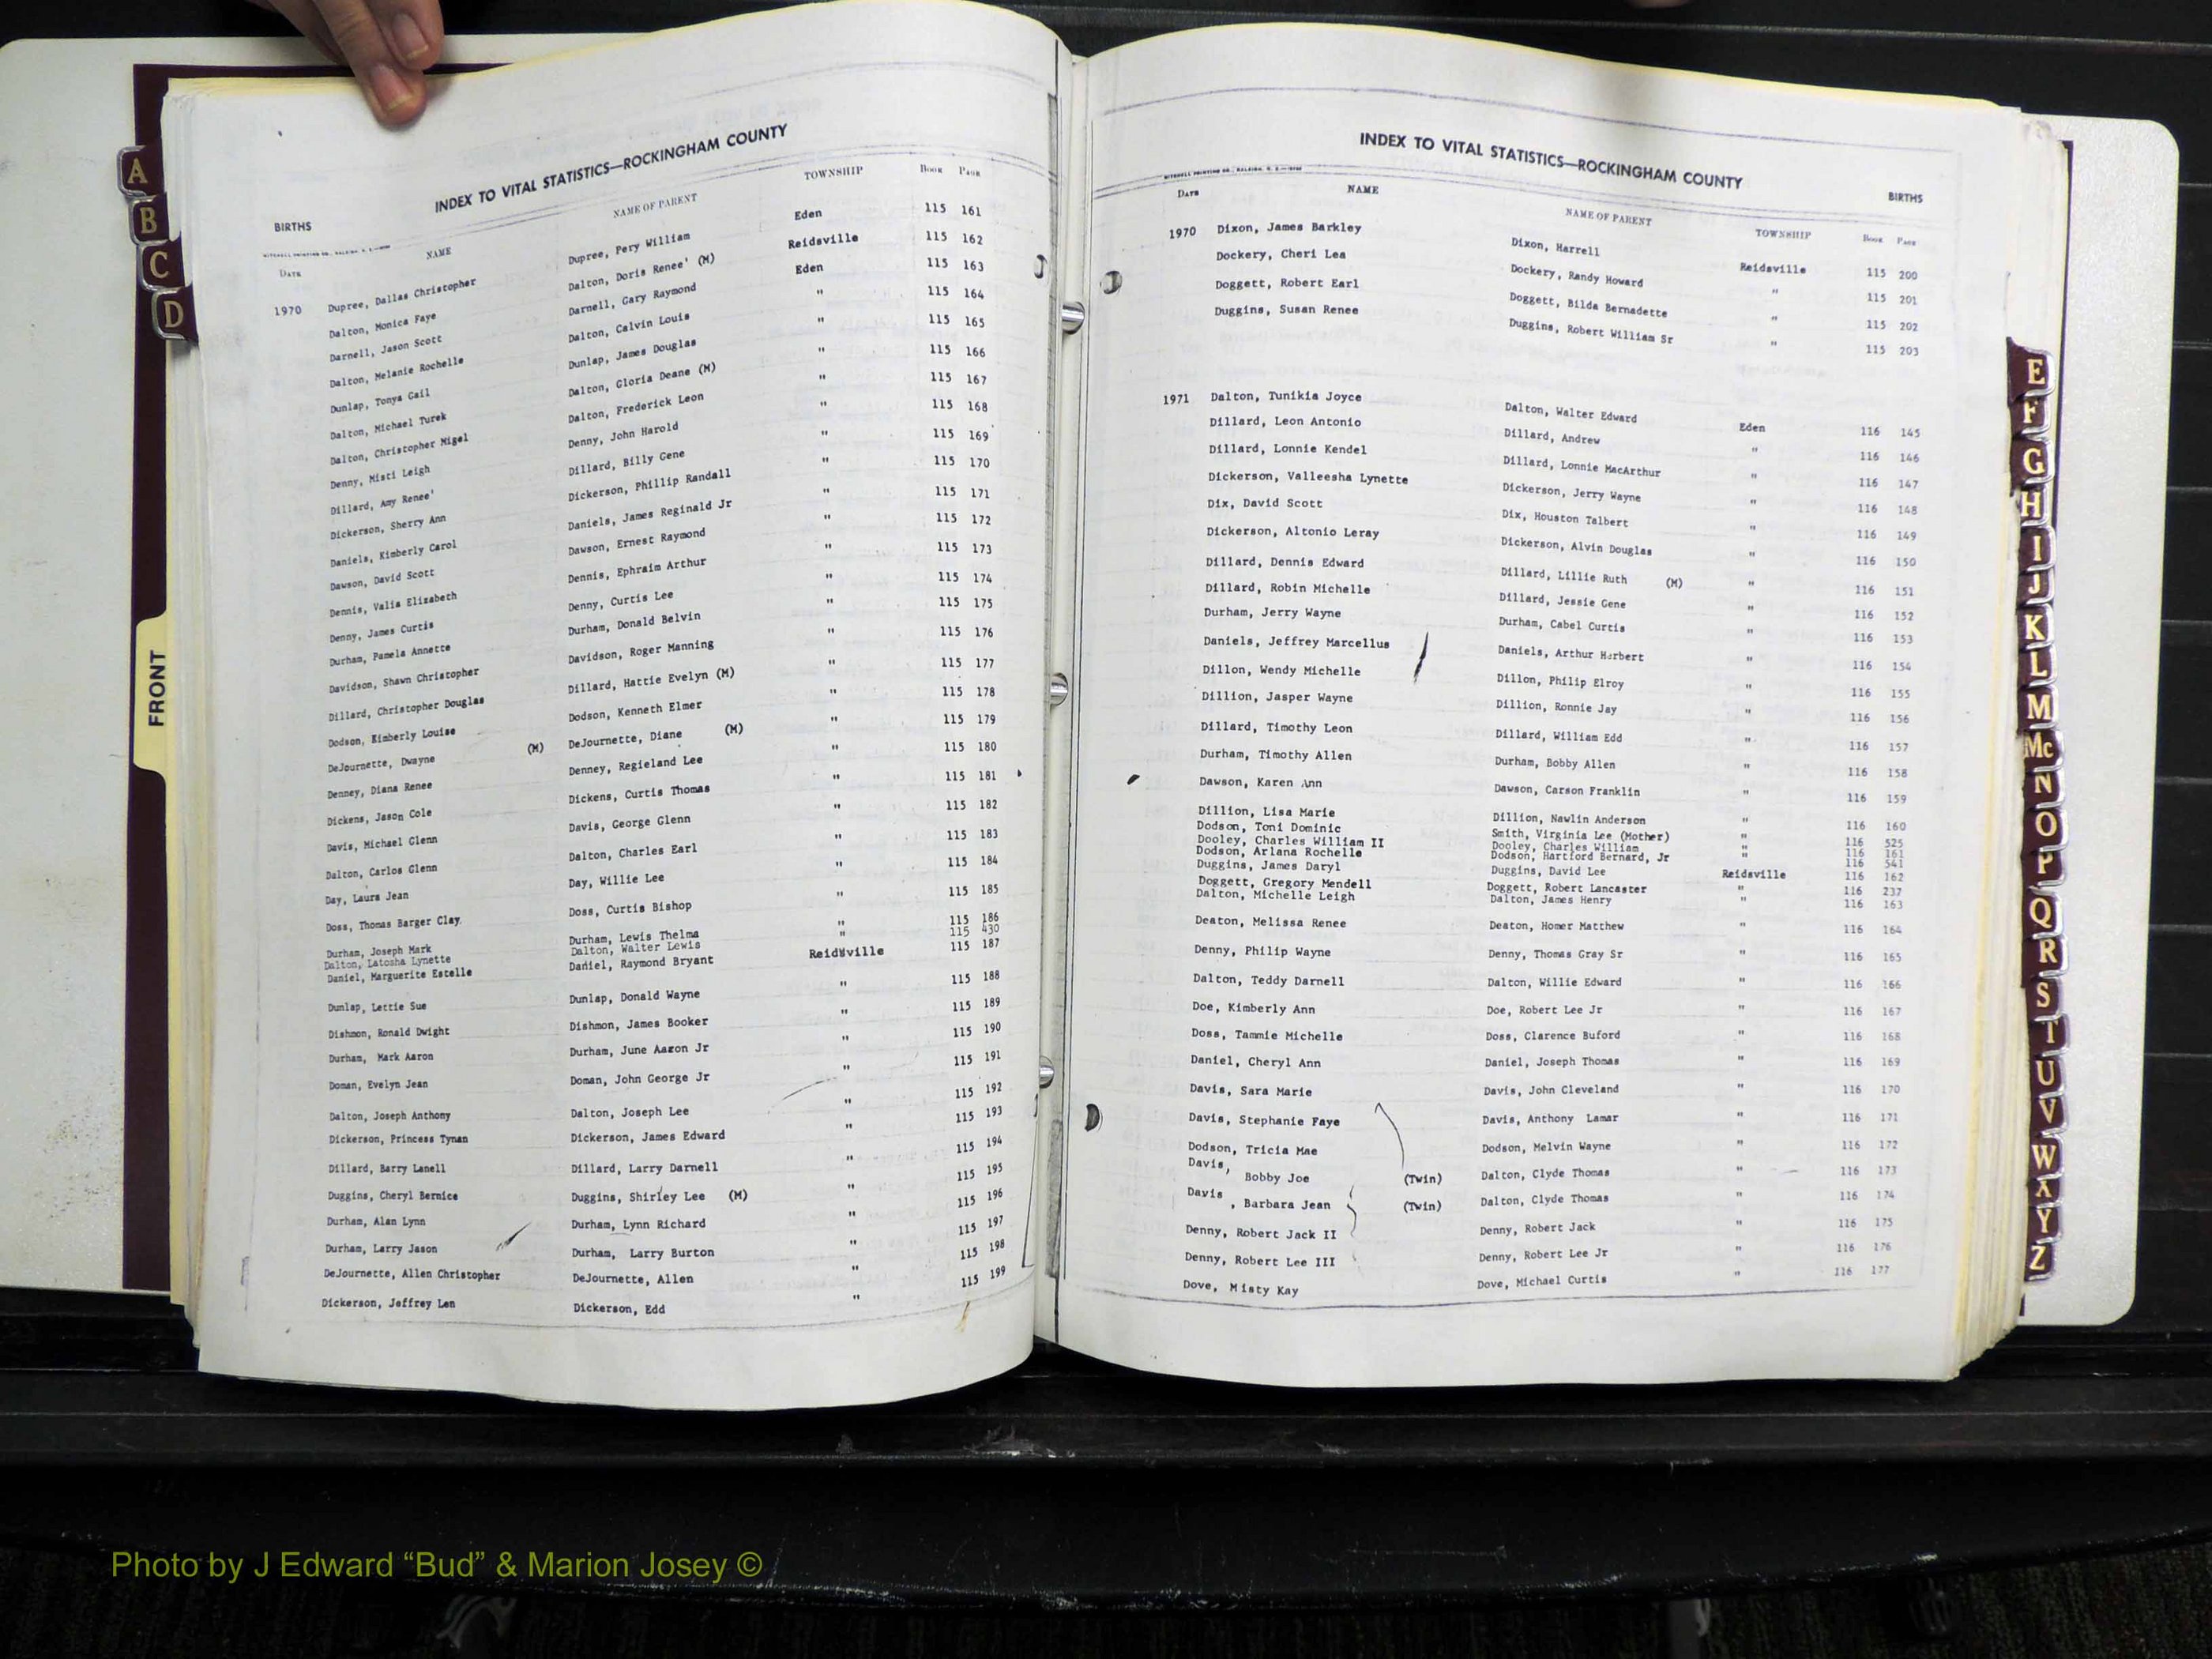 A
B
C
D
FRONT
INDEX TO VITAL STATISTICS—ROCKINGHAM COUNTY
BIRTHS
DATE NAME NAME OF PARENT TOWNSHIP BOOK PAGE
1970 Dupree, Dallas Christopher Dupree, Pery William Eden 115 161
Dalton, Monica Faye Dalton, Doris Renee' (M) Reidsville 115 162
Darnell, Jason Scott Darnell, Gary Raymond Eden 115 163
Dalton, Melanie Rochelle Dalton, Calvin Louis " 115 164
Dunlap, Tonya Gail Dunlap, James Douglas " 115 165
Dalton, Michael Turek Dalton, Gloria Deane (M) " 115 166
Dalton, Christopher Nigel Dalton, Frederick Leon " 115 167
Denny, Misti Leigh Denny, John Harold " 115 168
Dillard, Amy Renee' Dillard, Billy Gene " 115 169
Dickerson, Sherry Ann Dickerson, Phillip Randall " 115 170
Daniels, Kimberly Carol Daniels, James Reginald Jr " 115 171
Dawson, David Scott Dawson, Ernest Raymond " 115 172
Dennis, Valia Elizabeth Dennis, Ephraim Arthur " 115 173
Denny, James Curtis Denny, Curtis Lee " 115 174
Durham, Pamela Annette Durham, Donald Belvin " 115 175
Davidson, Shawn Christopher Davidson, Roger Manning " 115 176
Dillard, Christopher Douglas Dillard, Hattie Evelyn (M) " 115 177
Dodson, Kimberly Louise Dodson, Kenneth Elmer " 115 178
DeJournette, Dwayne (M) DeJournette, Diane (M) " 115 179
Denney, Diana Renee Denney, Regieland Lee " 115 180
Dickens, Jason Cole Dickens, Curtis Thomas " 115 181
Davis, Michael Glenn Davis, George Glenn " 115 182
Dalton, Carlos Glenn Dalton, Charles Earl " 115 183
Day, Laura Jean Day, Willie Lee " 115 184
Doss, Thomas Barger Clay Doss, Curtis Bishop " 115 185
Durham, Joseph Mark Durham, Lewis Thelma " 115 186
Dalton, Latosha Lynette Dalton, Walter Lewis " 115 430
Daniel, Marguerite Estelle Daniel, Raymond Bryant Reidsville 115 187
Dunlap, Lettie Sue Dunlap, Donald Wayne " 115 188
Dishmon, Ronald Dwight Dishmon, James Booker " 115 189
Durham, Mark Aaron Durham, June Aaron Jr " 115 190
Doman, Evelyn Jean Doman, John George Jr " 115 191
Dalton, Joseph Anthony Dalton, Joseph Lee " 115 192
Dickerson, Princess Tynan Dickerson, James Edward " 115 193
Dillard, Barry Lanell Dillard, Larry Darnell " 115 194
Duggins, Cheryl Bernice Duggins, Shirley Lee (M) " 115 195
Durham, Alan Lynn Durham, Lynn Richard " 115 196
Durham, Larry Jason Durham, Larry Burton " 115 197
DeJournette, Allen Christopher DeJournette, Allen " 115 198
Dickerson, Jeffrey Len Dickerson, Edd " 115 199
INDEX TO VITAL STATISTICS—ROCKINGHAM COUNTY
BIRTHS
DATE NAME NAME OF PARENT TOWNSHIP BOOK PAGE
1970 Dixon, James Barkley Dixon, Harrell Reidsville 115 200
Dockery, Cheri Lea Dockery, Randy Howard " 115 201
Doggett, Robert Earl Doggett, Bilda Bernadette " 115 202
Duggins, Susan Renee Duggins, Robert William Sr " 115 203
1971 Dalton, Tunikia Joyce Dalton, Walter Edward Eden 116 145
Dillard, Leon Antonio Dillard, Andrew " 116 146
Dillard, Lonnie Kendel Dillard, Lonnie MacArthur " 116 147
Dickerson, Valleesha Lynette Dickerson, Jerry Wayne " 116 148
Dix, David Scott Dix, Houston Talbert " 116 149
Dickerson, Altonio Leray Dickerson, Alvin Douglas " 116 150
Dillard, Dennis Edward Dillard, Lillie Ruth (M) " 116 151
Dillard, Robin Michelle Dillard, Jessie Gene " 116 152
Durham, Jerry Wayne Durham, Cabel Curtis " 116 153
Daniels, Jeffrey Marcellus Daniels, Arthur Herbert " 116 154
Dillon, Wendy Michelle Dillon, Philip Elroy " 116 155
Dillion, Jasper Wayne Dillion, Ronnie Jay " 116 156
Dillard, Timothy Leon Dillard, William Edd " 116 157
Durham, Timothy Allen Durham, Bobby Allen " 116 158
Dawson, Karen Ann Dawson, Carson Franklin " 116 159
Dillion, Lisa Marie Dillion, Nawlin Anderson " 116 160
Dodson, Toni Dominic Smith, Virginia Lee (Mother) " 116 525
Dooley, Charles William II Dooley, Charles William " 116 161
Dodson, Arlana Rochelle Dodson, Hartford Bernard, Jr " 116 541
Duggins, James Daryl Duggins, David Lee Reidsville 116 162
Doggett, Gregory Mendell Doggett, Robert Lancaster " 116 237
Dalton, Michelle Leigh Dalton, James Henry " 116 163
Deaton, Melissa Renee Deaton, Homer Matthew " 116 164
Denny, Philip Wayne Denny, Thomas Gray Sr " 116 165
Dalton, Teddy Darnell Dalton, Willie Edward " 116 166
Doe, Kimberly Ann Doe, Robert Lee Jr " 116 167
Doss, Tammie Michelle Doss, Clarence Buford " 116 168
Daniel, Cheryl Ann Daniel, Joseph Thomas " 116 169
Davis, Sara Marie Davis, John Cleveland " 116 170
Davis, Stephanie Faye Davis, Anthony Lamar " 116 171
Dodson, Tricia Mae Dodson, Melvin Wayne " 116 172
Davis, Bobby Joe (Twin) Dalton, Clyde Thomas " 116 173
Davis, Barbara Jean (Twin) Dalton, Clyde Thomas " 116 174
Denny, Robert Jack II Denny, Robert Jack " 116 175
Denny, Robert Lee III Denny, Robert Lee Jr " 116 176
Dove, Misty Kay Dove, Michael Curtis " 116 177
E
F
G
H
I
J
K
L
M
Mc
N
O
P
Q
R
S
T
U
V
W
X
Y
Z
Photo by J Edward “Bud” & Marion Josey ©